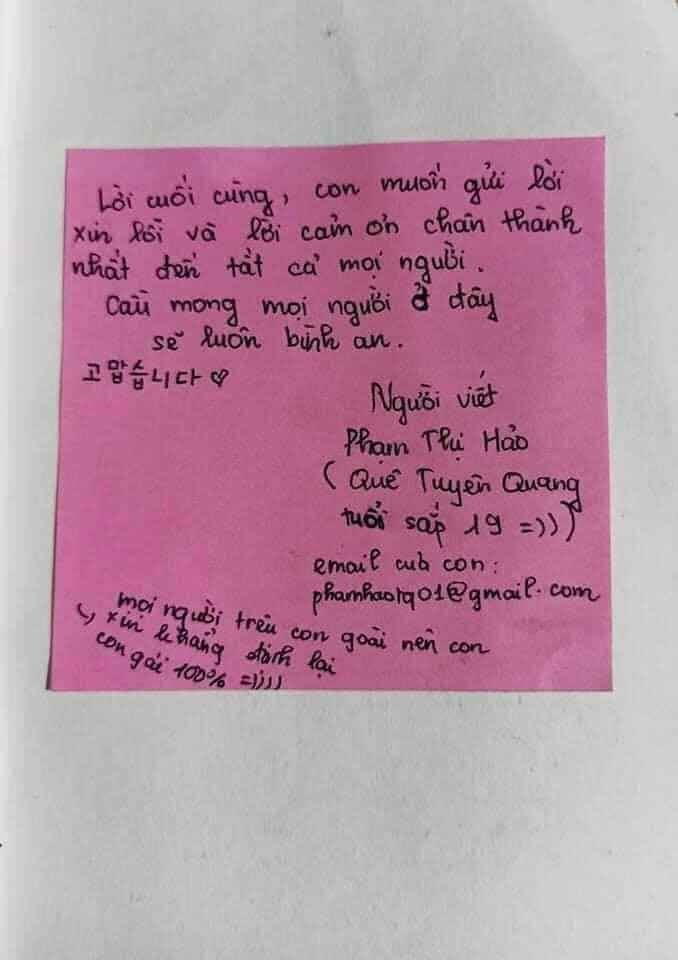 Lời cuối cùng, con muốn gửi lời
xin lỗi và lời cảm ơn chân thành
nhất đến tất cả mọi người.
Cầu mong mọi người ở đây
sẽ luôn bình an.
고맙습니다 ♡
Người viết
Phạm Thị Hảo
(Quê Tuyên Quang
tuổi sắp 19 =)))
email cub con:
phamhaotq01@gmail.com
mọi người trêu con goài nên con
↳ xin khẳng định lại
con gái 100% =))))